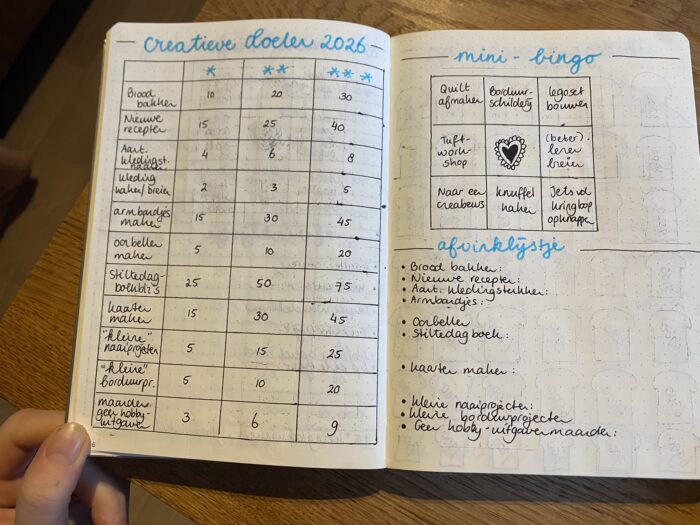 creatieve doelen 2026
* ** ***
Brood
bakken 10 20 30
Nieuwe
recepten 15 25 40
Aant.
kledingst.
naaien 4 6 8
kleding
haken/breien 2 3 5
armbandjes
maken 15 30 45
oorbellen
maken 5 10 20
Stiltedag-
boekblz's 25 50 75
kaarten
maken 15 30 45
"kleine"
naaiprojecten 5 15 25
"kleine"
borduurpr. 5 10 20
maanden
geen hobby-
uitgaven 3 6 9
6
mini-bingo
Quilt
afmaken
Borduur-
schilderij
legoset
bouwen
Tuft-
work-
shop
(beter)
leren
breien
Naar een
creabeurs
knuffel
haken
Iets vd
kringloop
opknappen
afvinklijstje
• Brood bakken:
• Nieuwe recepten:
• Aant. kledingstukken:
• Armbandjes:
• Oorbellen
• Stiltedagboek:
• Kaarten maken:
• kleine naaiprojecten:
• kleine borduurprojecten
• Geen hobby-uitgaven maanden: